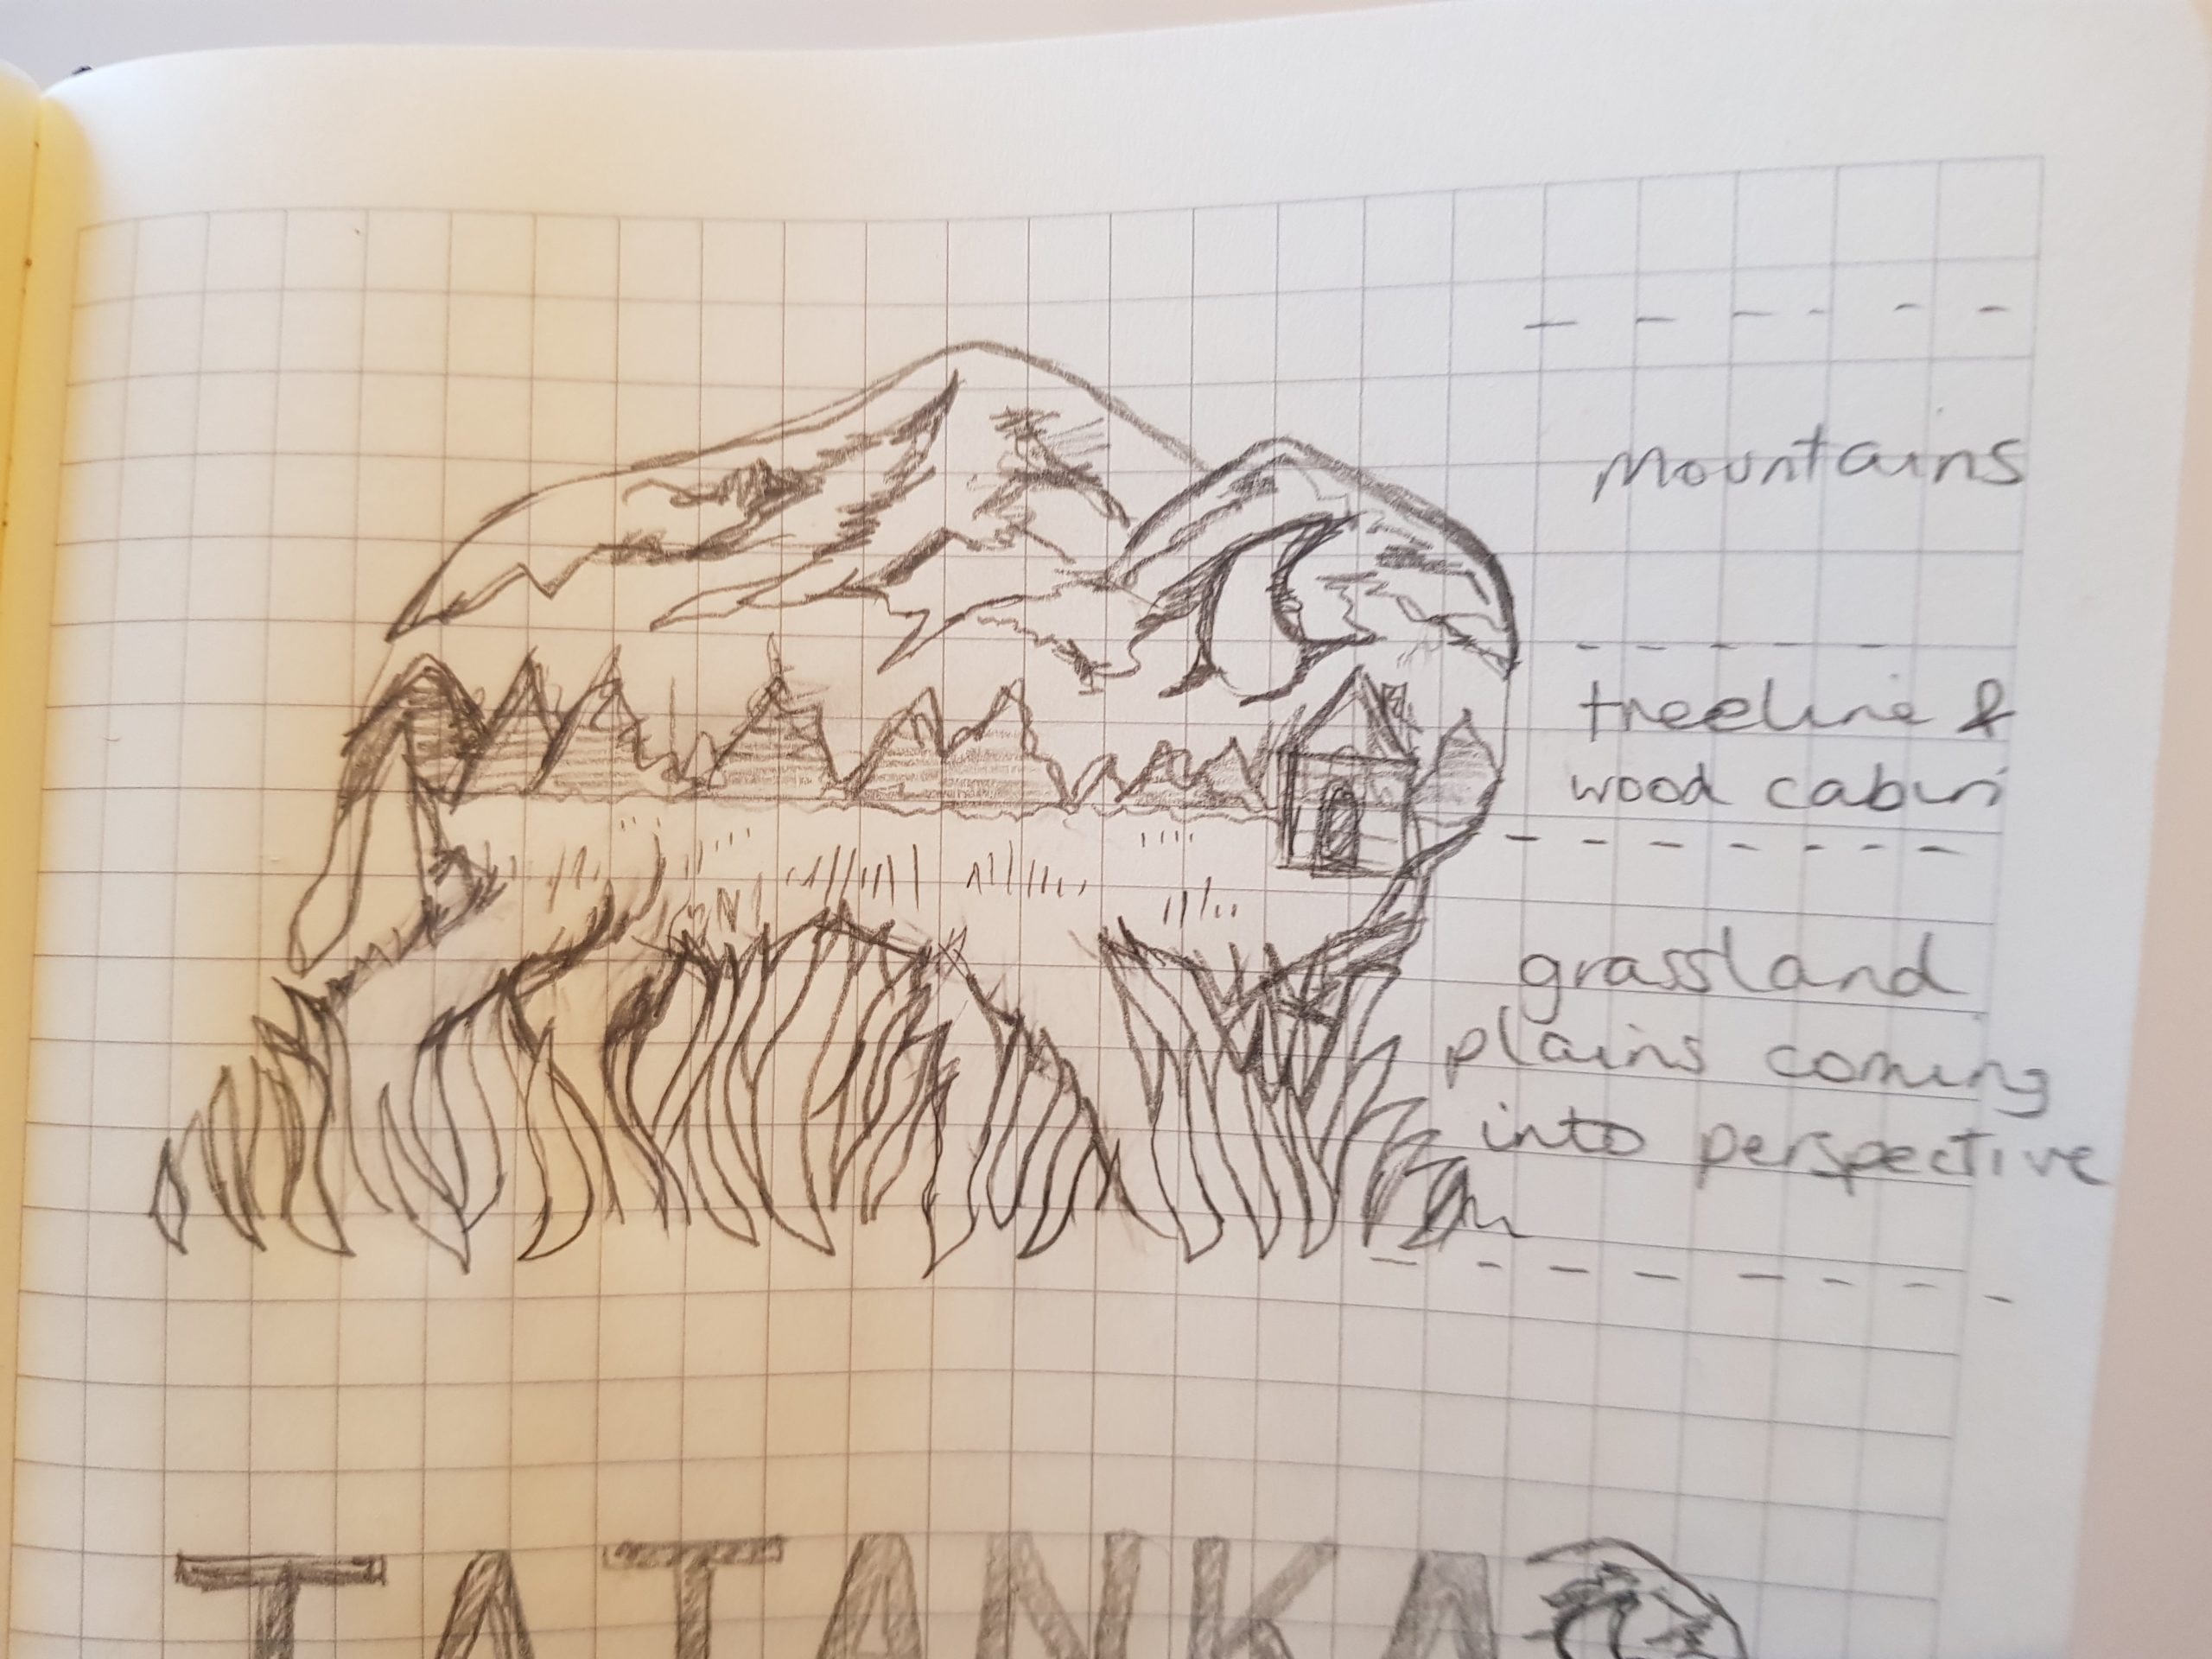 Mountains
treeline &
wood cabin
grassland
plains coming
into perspective
TATANKA